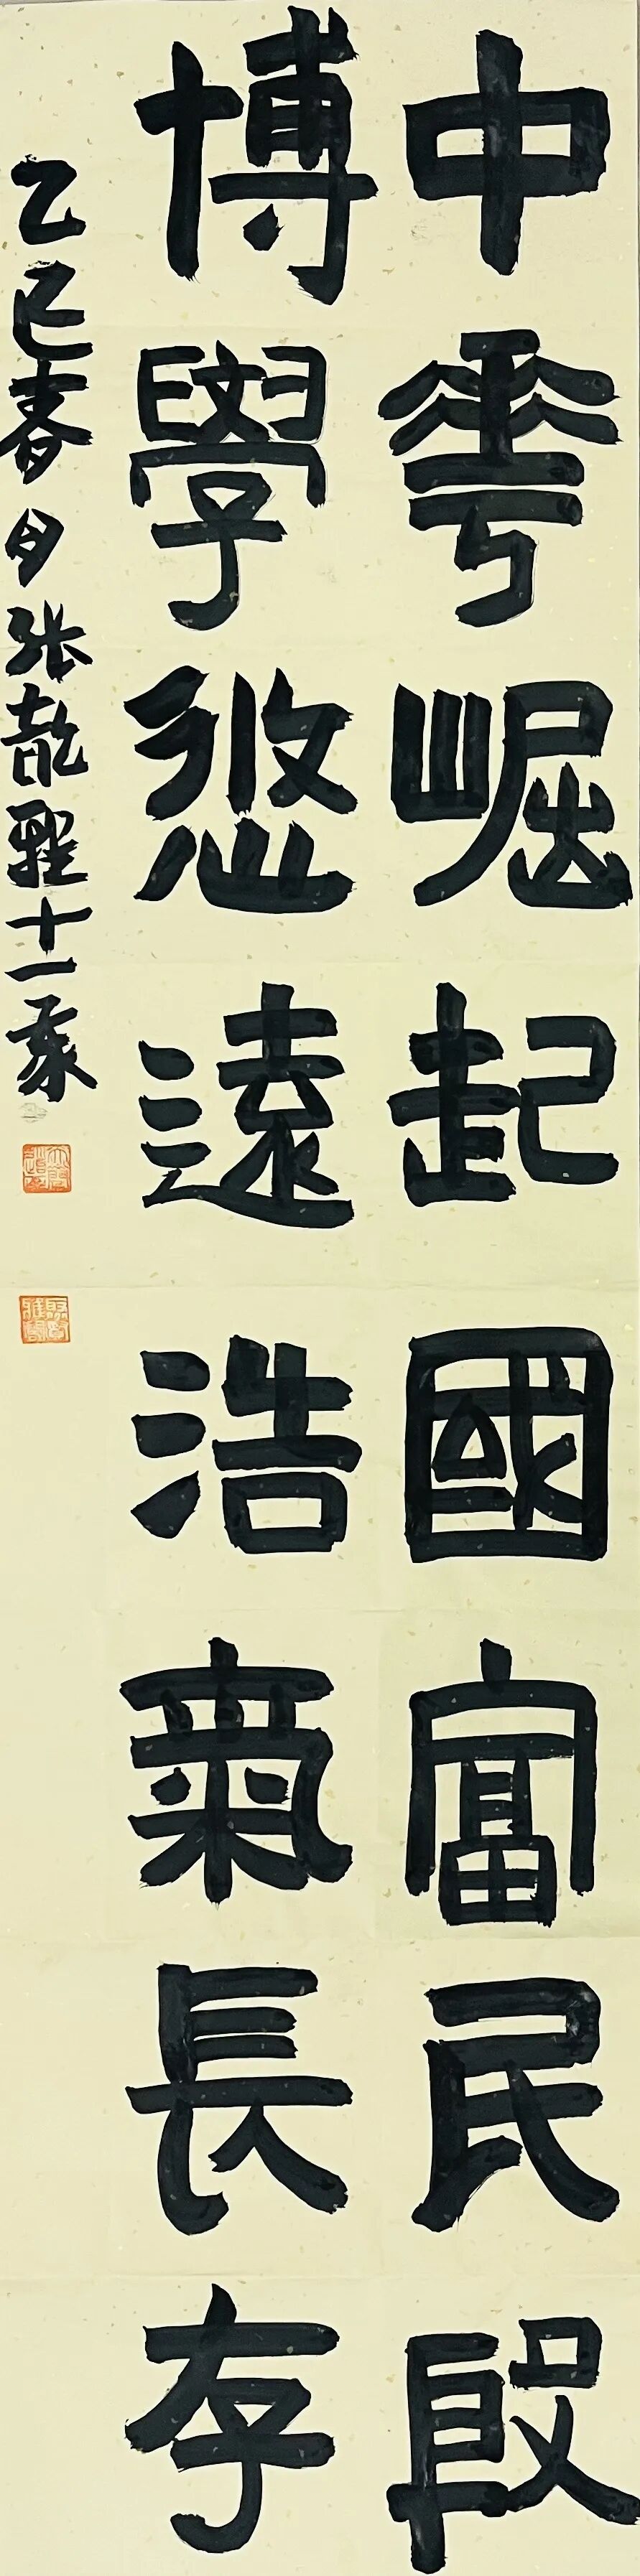 中華崛起國富民殷
博學悠遠浩氣長存
乙巳春月張乾聖十一歲